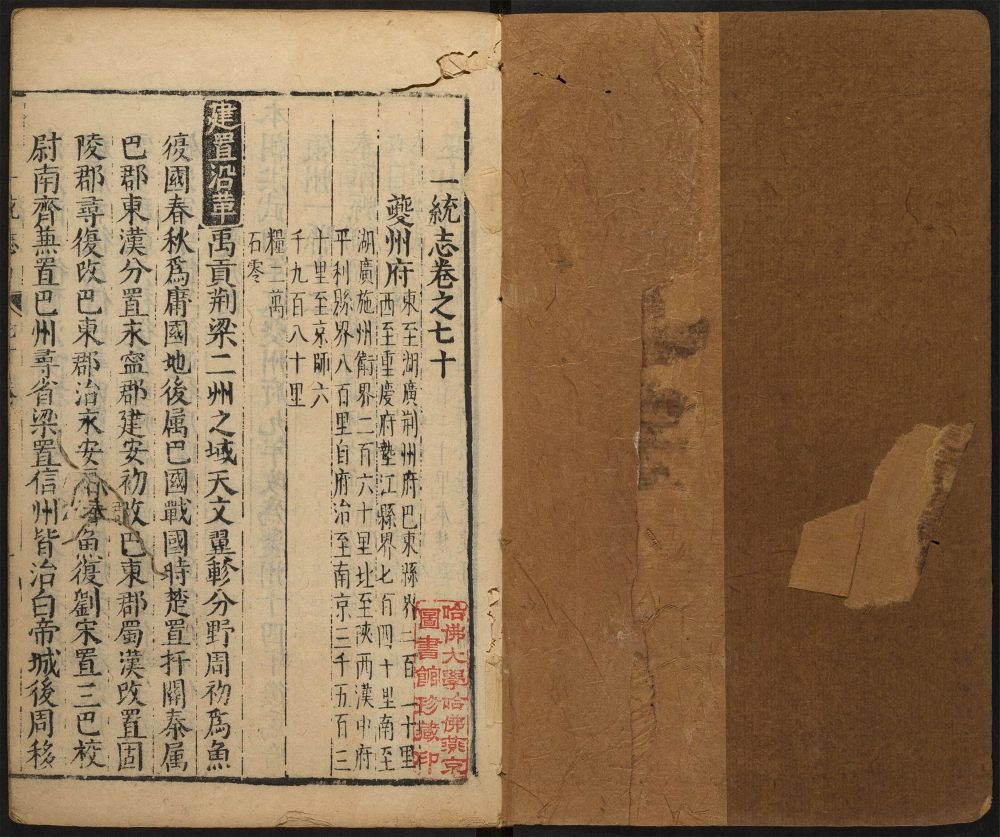 一統志卷之七十
夔州府
東至湖廣荆州府巴東縣界二百一十里
西至重慶府墊江縣界七百四十里南至
湖廣施州衛界二百六十里北至陝西漢中府
平利縣界八百里自府治至南京三千五百三
十里至京師六
千九百八十里
糧二萬
石零
建置沿革禹貢荆梁二州之域天文翼軫分野周初爲魚
復國春秋爲庸國地後属巴國戰國時楚置扞關秦属
巴郡東漢分置永寧郡建安初改巴東郡蜀漢改置固
陵郡尋復改巴東郡治永安 魚復劉宋置三巴校
尉南齊兼置巴州尋省梁置信州皆治白帝城後周移
哈佛大學哈佛燕京
圖書館珍藏印